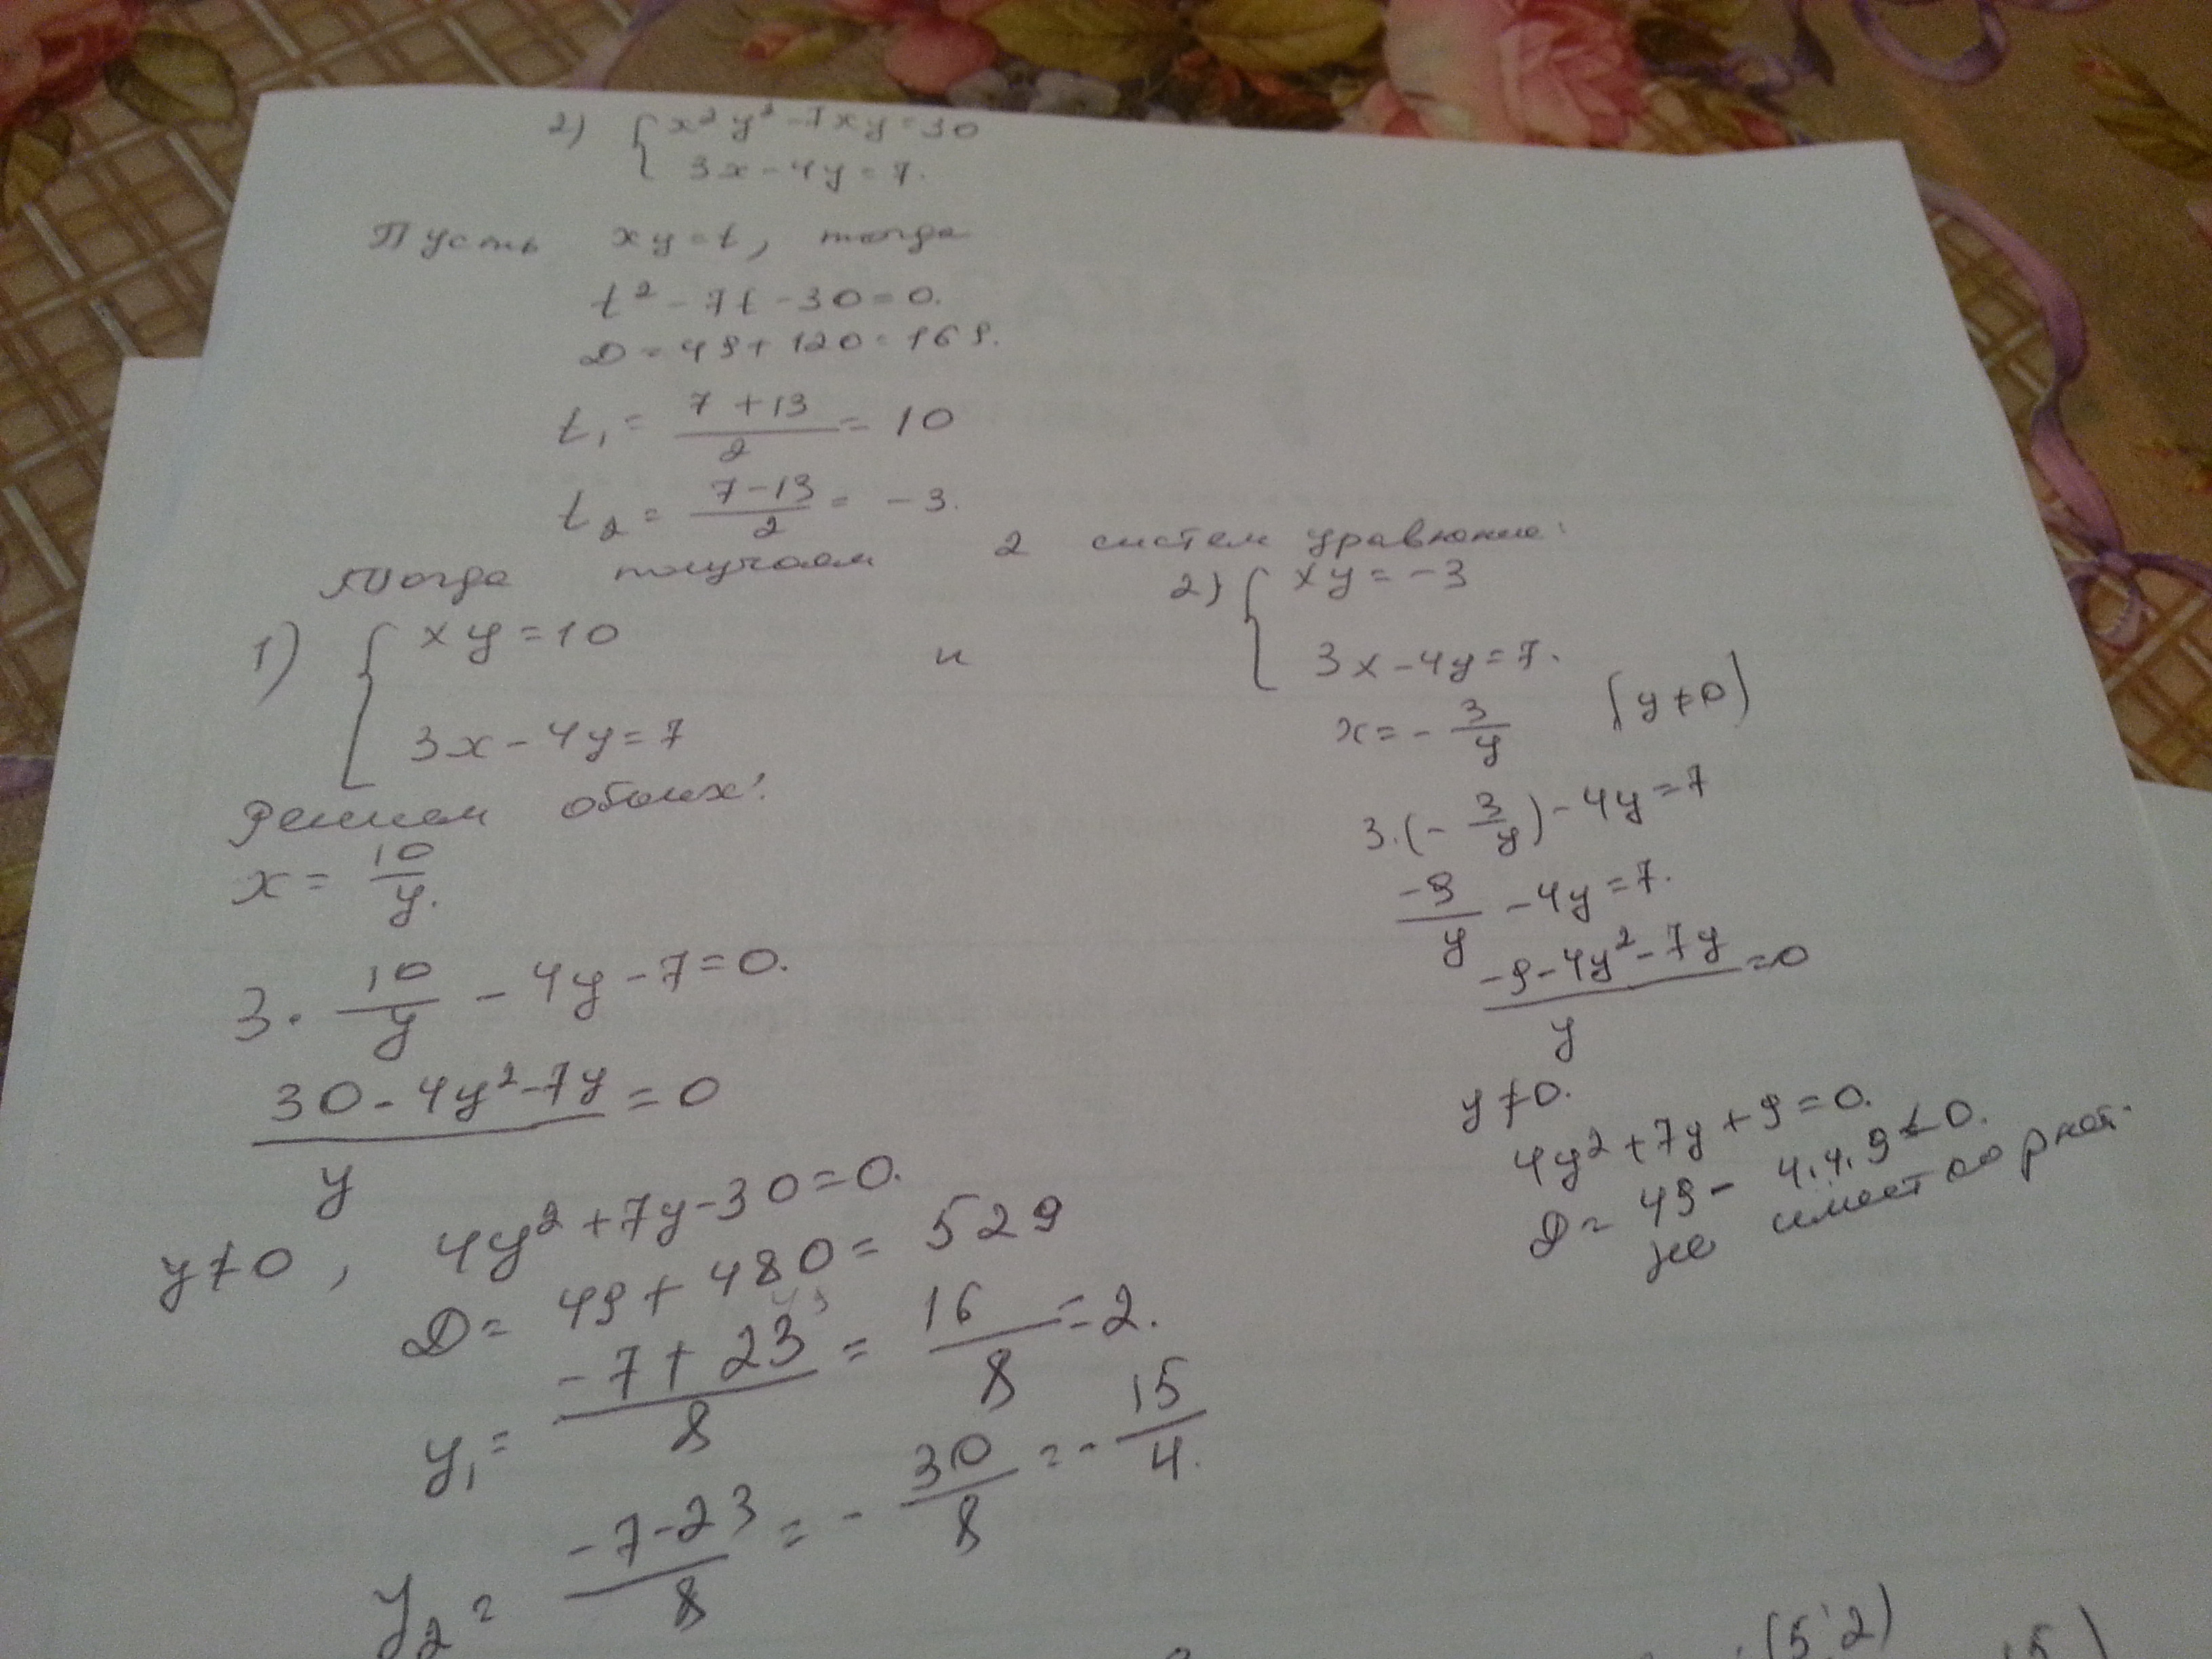 2) { x² y² - 7xy = 30
3x - 4y = 7.
Пусть xy = t, тогда
t² - 7t - 30 = 0.
D = 49 + 120 = 169.
t₁ = (7 + 13)/2 = 10
t₂ = (7 - 13)/2 = -3.
Тогда получаем 2 систем уравнение:
1) { xy = 10
3x - 4y = 7
и
2) { xy = -3
3x - 4y = 7.
Решаем обоих:
x = 10/y.
3 · 10/y - 4y - 7 = 0.
(30 - 4y² - 7y)/y = 0
y ≠ 0, 4y² + 7y - 30 = 0.
D = 49 + 480 = 529
y₁ = (-7 + 23)/8 = 16/8 = 2.
y₂ = (-7 - 23)/8 = -30/8 = -15/4.
x = -3/y (y ≠ 0)
3·(-3/y) - 4y = 7
-9/y - 4y = 7.
(-9 - 4y² - 7y)/y = 0
y ≠ 0.
4y² + 7y + 9 = 0.
D = 49 - 4.4.9 < 0.
не имеет
(5; 2)